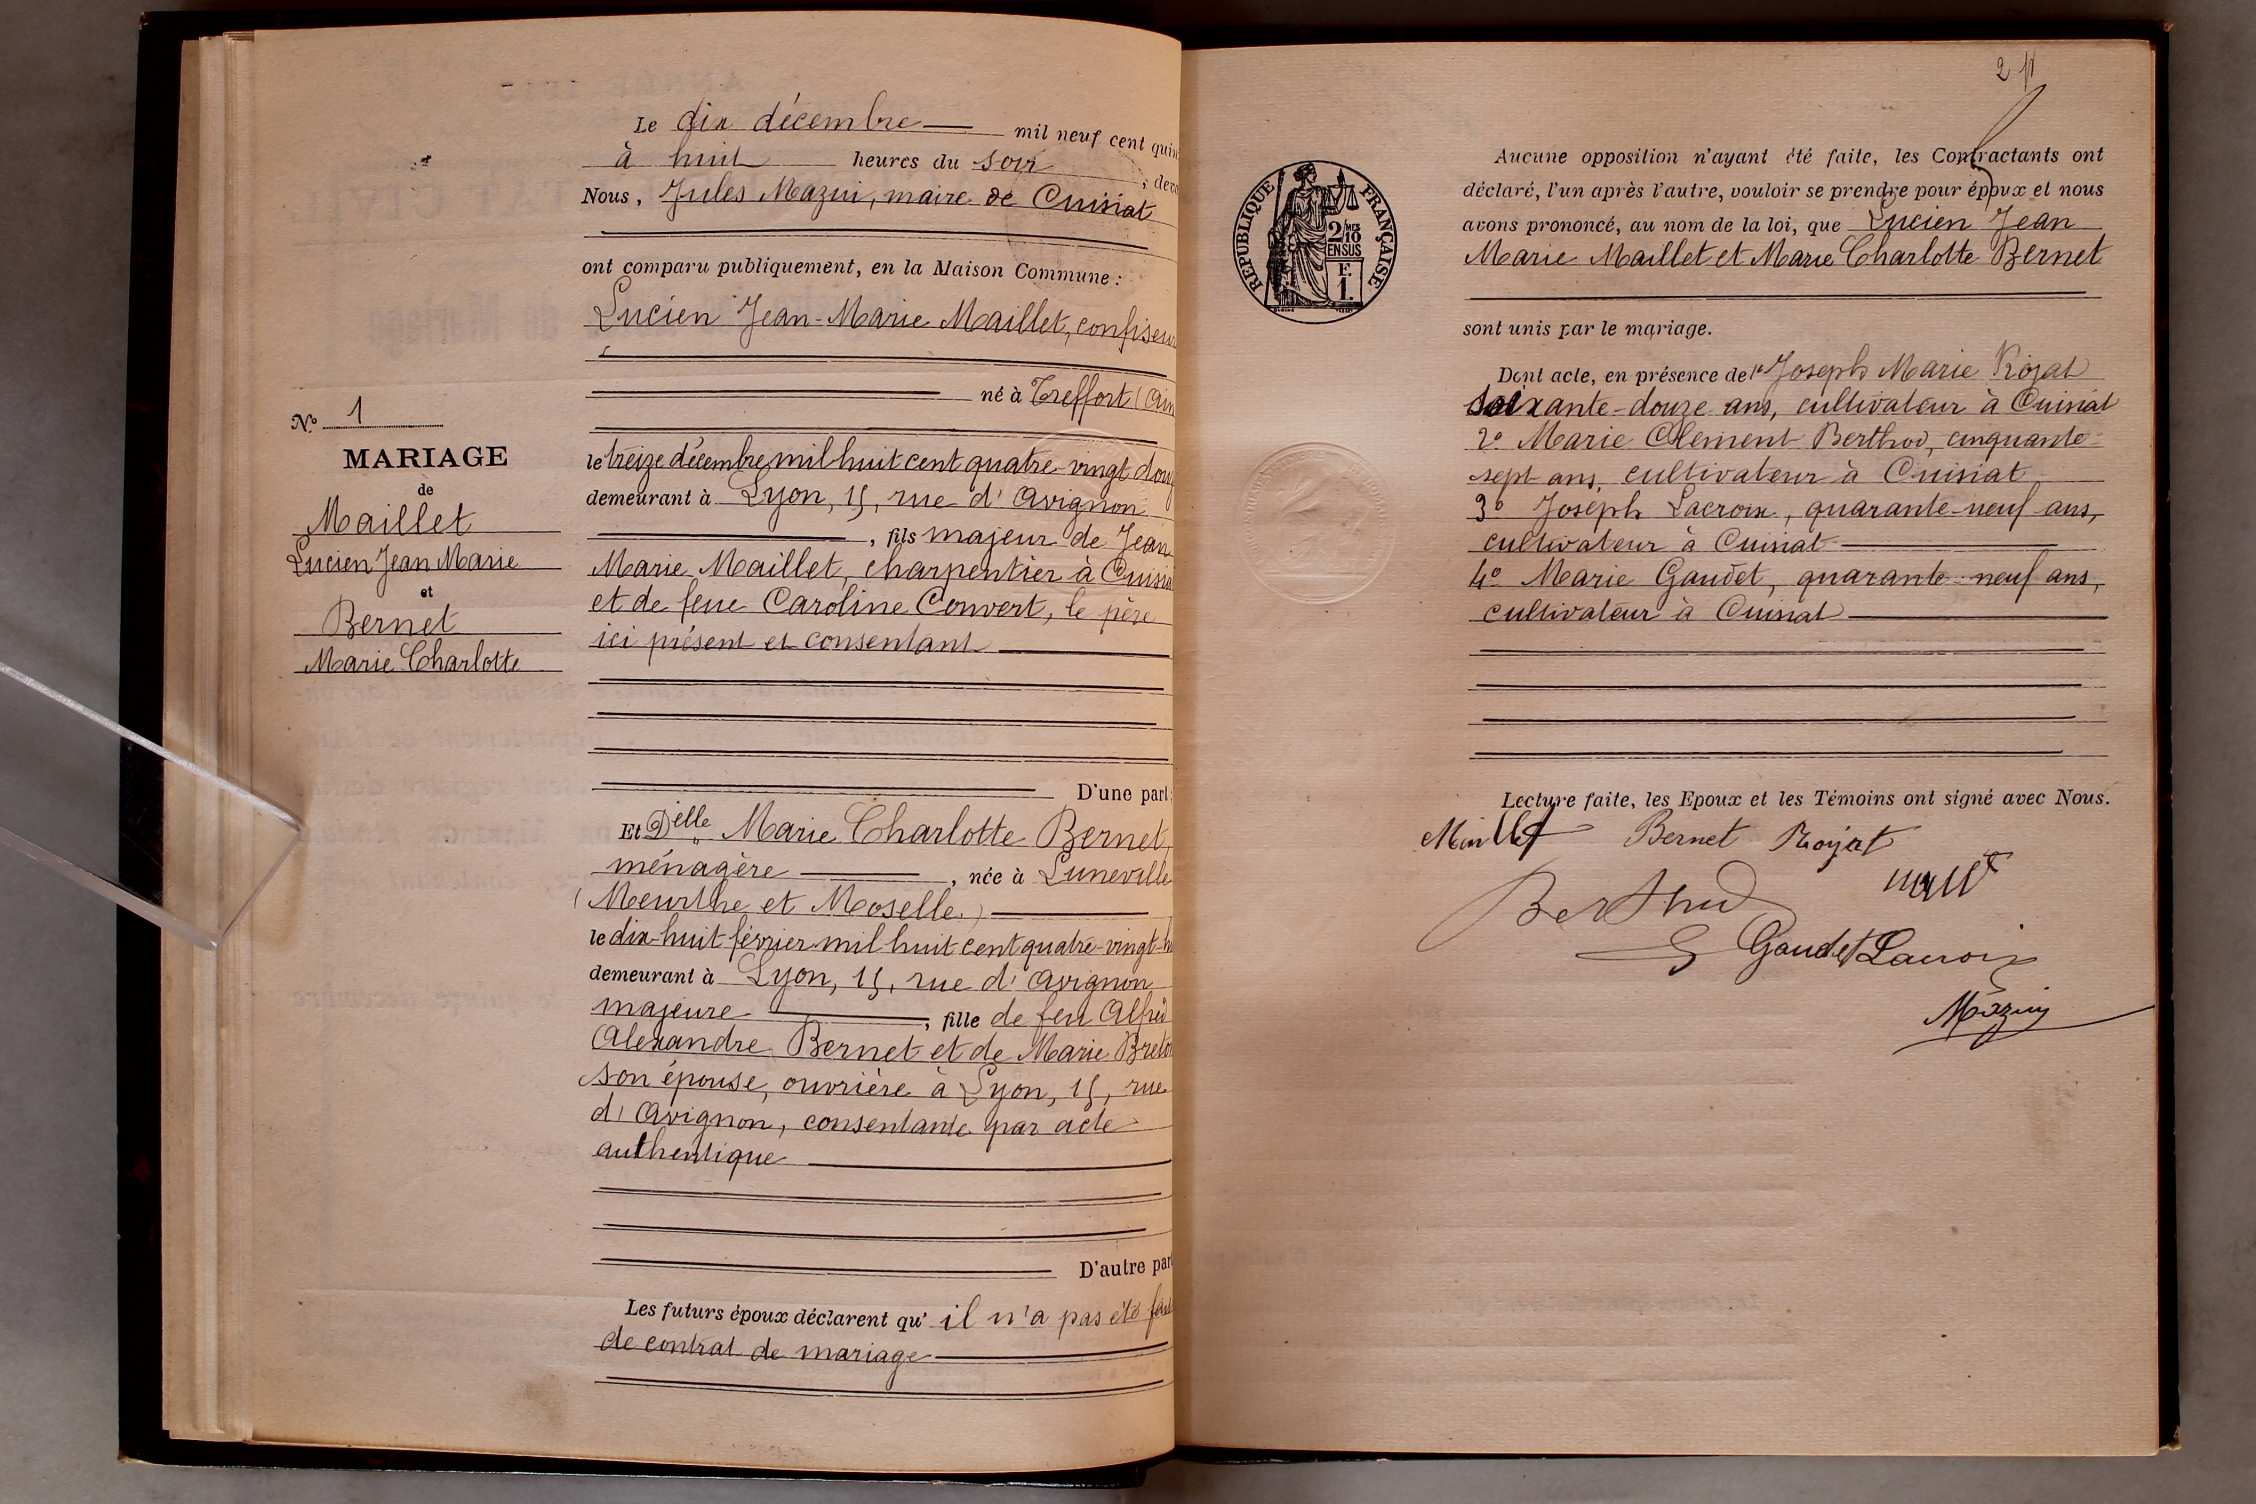 Le dix décembre mil neuf cent quin
à huit heures du soir, deva
Nous, Jules Mazui, maire de Cuisiat
ont comparu publiquement, en la Maison Commune :
Lucien Jean-Marie Maillet, confiseur
né à Treffort (Ain
le treize décembre mil huit cent quatre-vingt douz
demeurant à Lyon, 15, rue d'Avignon
, fils majeur de Jean
Marie Maillet, charpentier à Cuisia
et de feue Caroline Convert, le père
ici présent et consentant
D'une part ;
Et Delle Marie Charlotte Bernet,
ménagère, née à Luneville
(Meurthe et Moselle)
le dix-huit février mil huit cent quatre-vingt-h
demeurant à Lyon, 15, rue d'Avignon
majeure, fille de feu Alfred
Alexandre Bernet et de Marie Breton
son épouse, ouvrière à Lyon, 15, rue
d'Avignon, consentante par acte
authentique
D'autre part
Les futurs époux déclarent qu' il n'a pas été fait
de contrat de mariage
No 1
MARIAGE
de
Maillet
Lucien Jean Marie
et
Bernet
Marie Charlotte
2
REPUBLIQUE FRANÇAISE
2/10 MES
EN SUS
F.
1.
Aucune opposition n'ayant été faite, les Contractants ont
déclaré, l'un après l'autre, vouloir se prendre pour époux et nous
avons prononcé, au nom de la loi, que Lucien Jean
Marie Maillet et Marie Charlotte Bernet
sont unis par le mariage.
Dont acte, en présence de 1º Joseph Marie Rojat
soixante-douze ans, cultivateur à Cuisiat
2º Marie Clément Berthod, cinquante-
sept ans, cultivateur à Cuisiat
3º Joseph Lacroix, quarante-neuf ans,
cultivateur à Cuisiat
4º Marie Gaudet, quarante-neuf ans,
cultivateur à Cuisiat
Lecture faite, les Epoux et les Témoins ont signé avec Nous.
Maillet Bernet Rojat
Berthod
Gaudet Lacroix
Mazuy